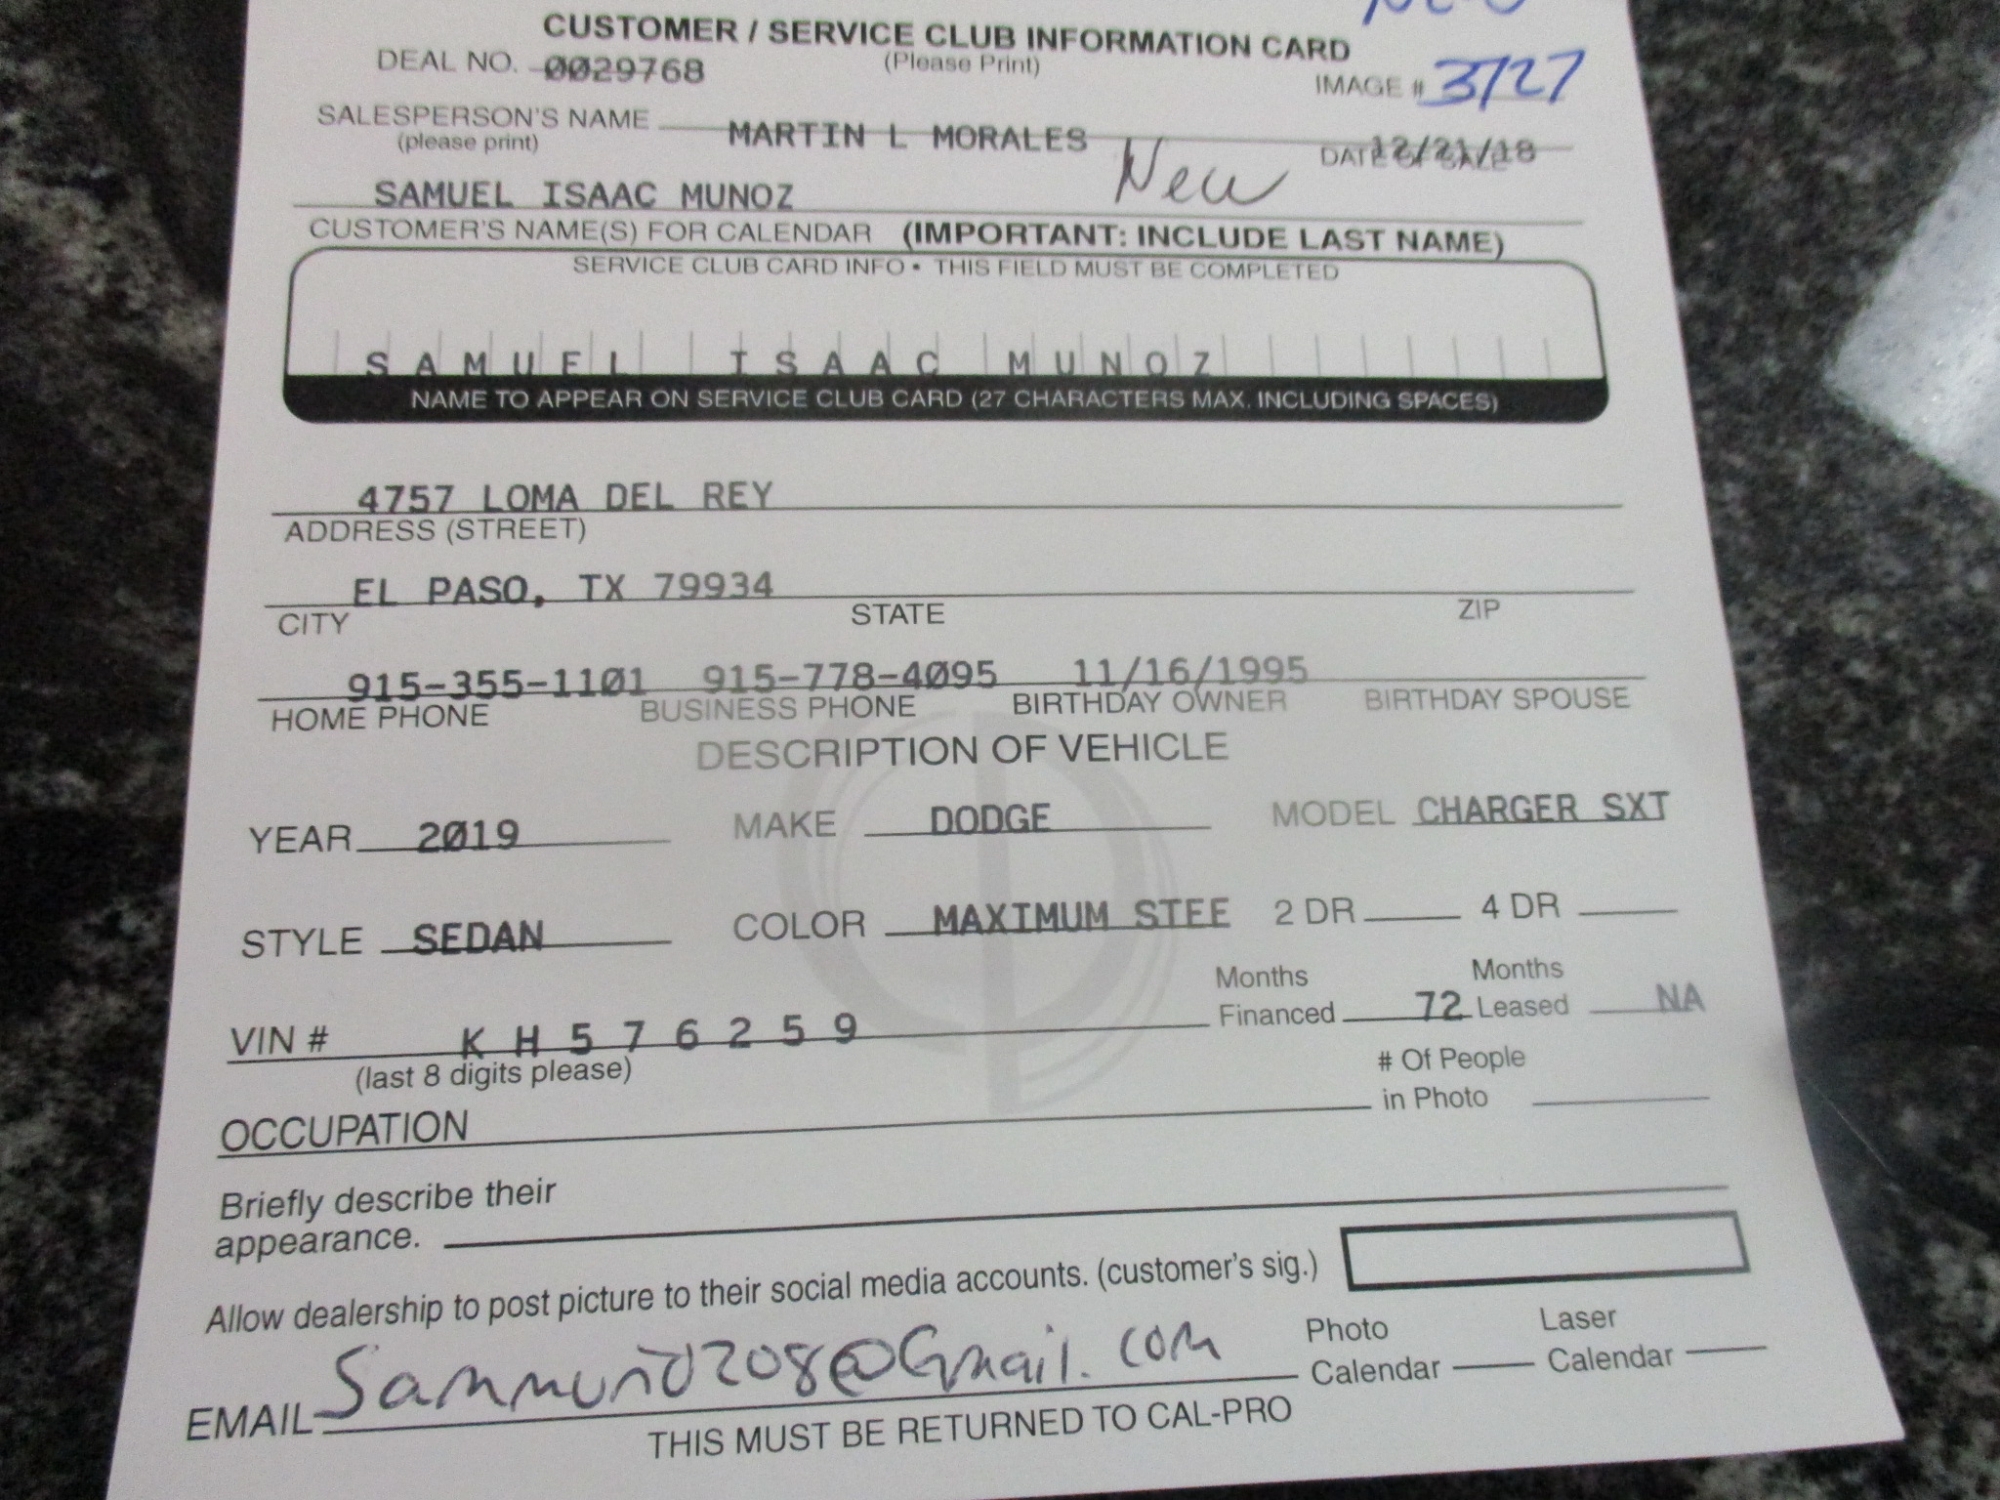 CUSTOMER / SERVICE CLUB INFORMATION CARD
(Please Print)
DEAL NO. 0029768
IMAGE # 3727
SALESPERSON'S NAME MARTIN L MORALES
(please print)
New
DATE OF SALE 12/21/18
SAMUEL ISAAC MUNOZ
CUSTOMER'S NAME(S) FOR CALENDAR (IMPORTANT: INCLUDE LAST NAME)
SERVICE CLUB CARD INFO • THIS FIELD MUST BE COMPLETED
SAMUEL ISAAC MUNOZ
NAME TO APPEAR ON SERVICE CLUB CARD (27 CHARACTERS MAX. INCLUDING SPACES)
4757 LOMA DEL REY
ADDRESS (STREET)
EL PASO, TX 79934
CITY STATE ZIP
915-355-1101 915-778-4095 11/16/1995
HOME PHONE BUSINESS PHONE BIRTHDAY OWNER BIRTHDAY SPOUSE
DESCRIPTION OF VEHICLE
YEAR 2019 MAKE DODGE MODEL CHARGER SXT
STYLE SEDAN COLOR MAXIMUM STEE 2 DR 4 DR
VIN # K H 5 7 6 2 5 9 Months Financed 72 Months Leased NA
(last 8 digits please)
# Of People in Photo
OCCUPATION
Briefly describe their
appearance.
Allow dealership to post picture to their social media accounts. (customer's sig.)
EMAIL Sammuño208@Gmail.com Photo Calendar Laser Calendar
THIS MUST BE RETURNED TO CAL-PRO